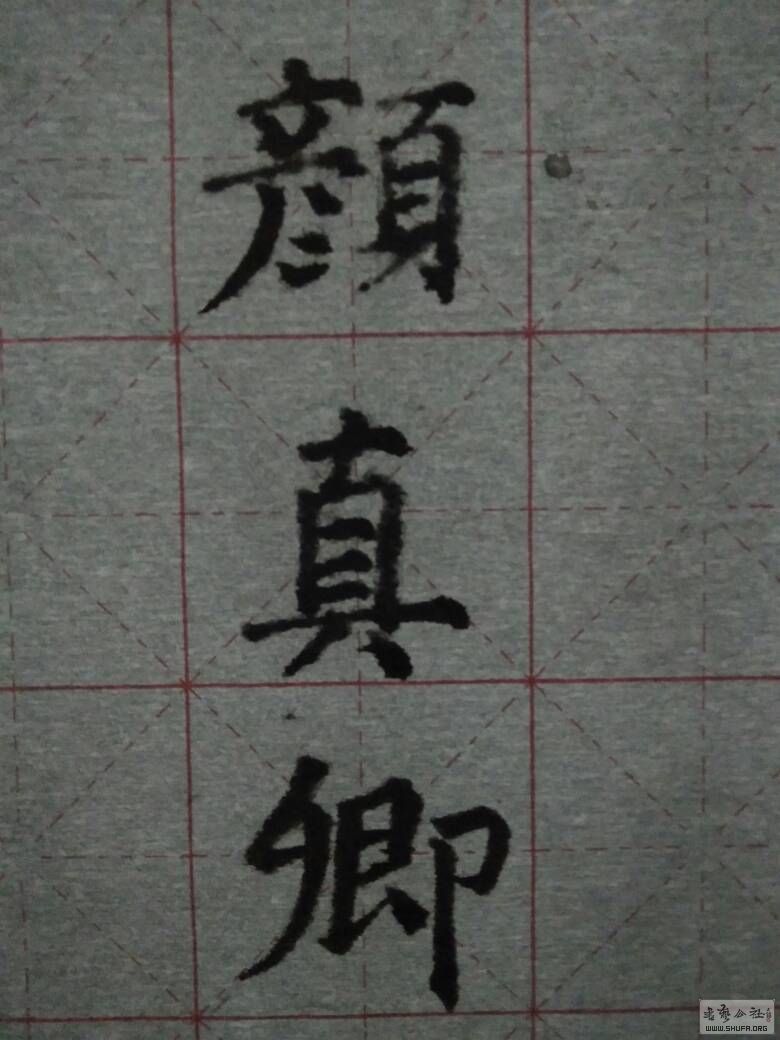 顔真卿
書藝公社
WWW.SHUFA.ORG